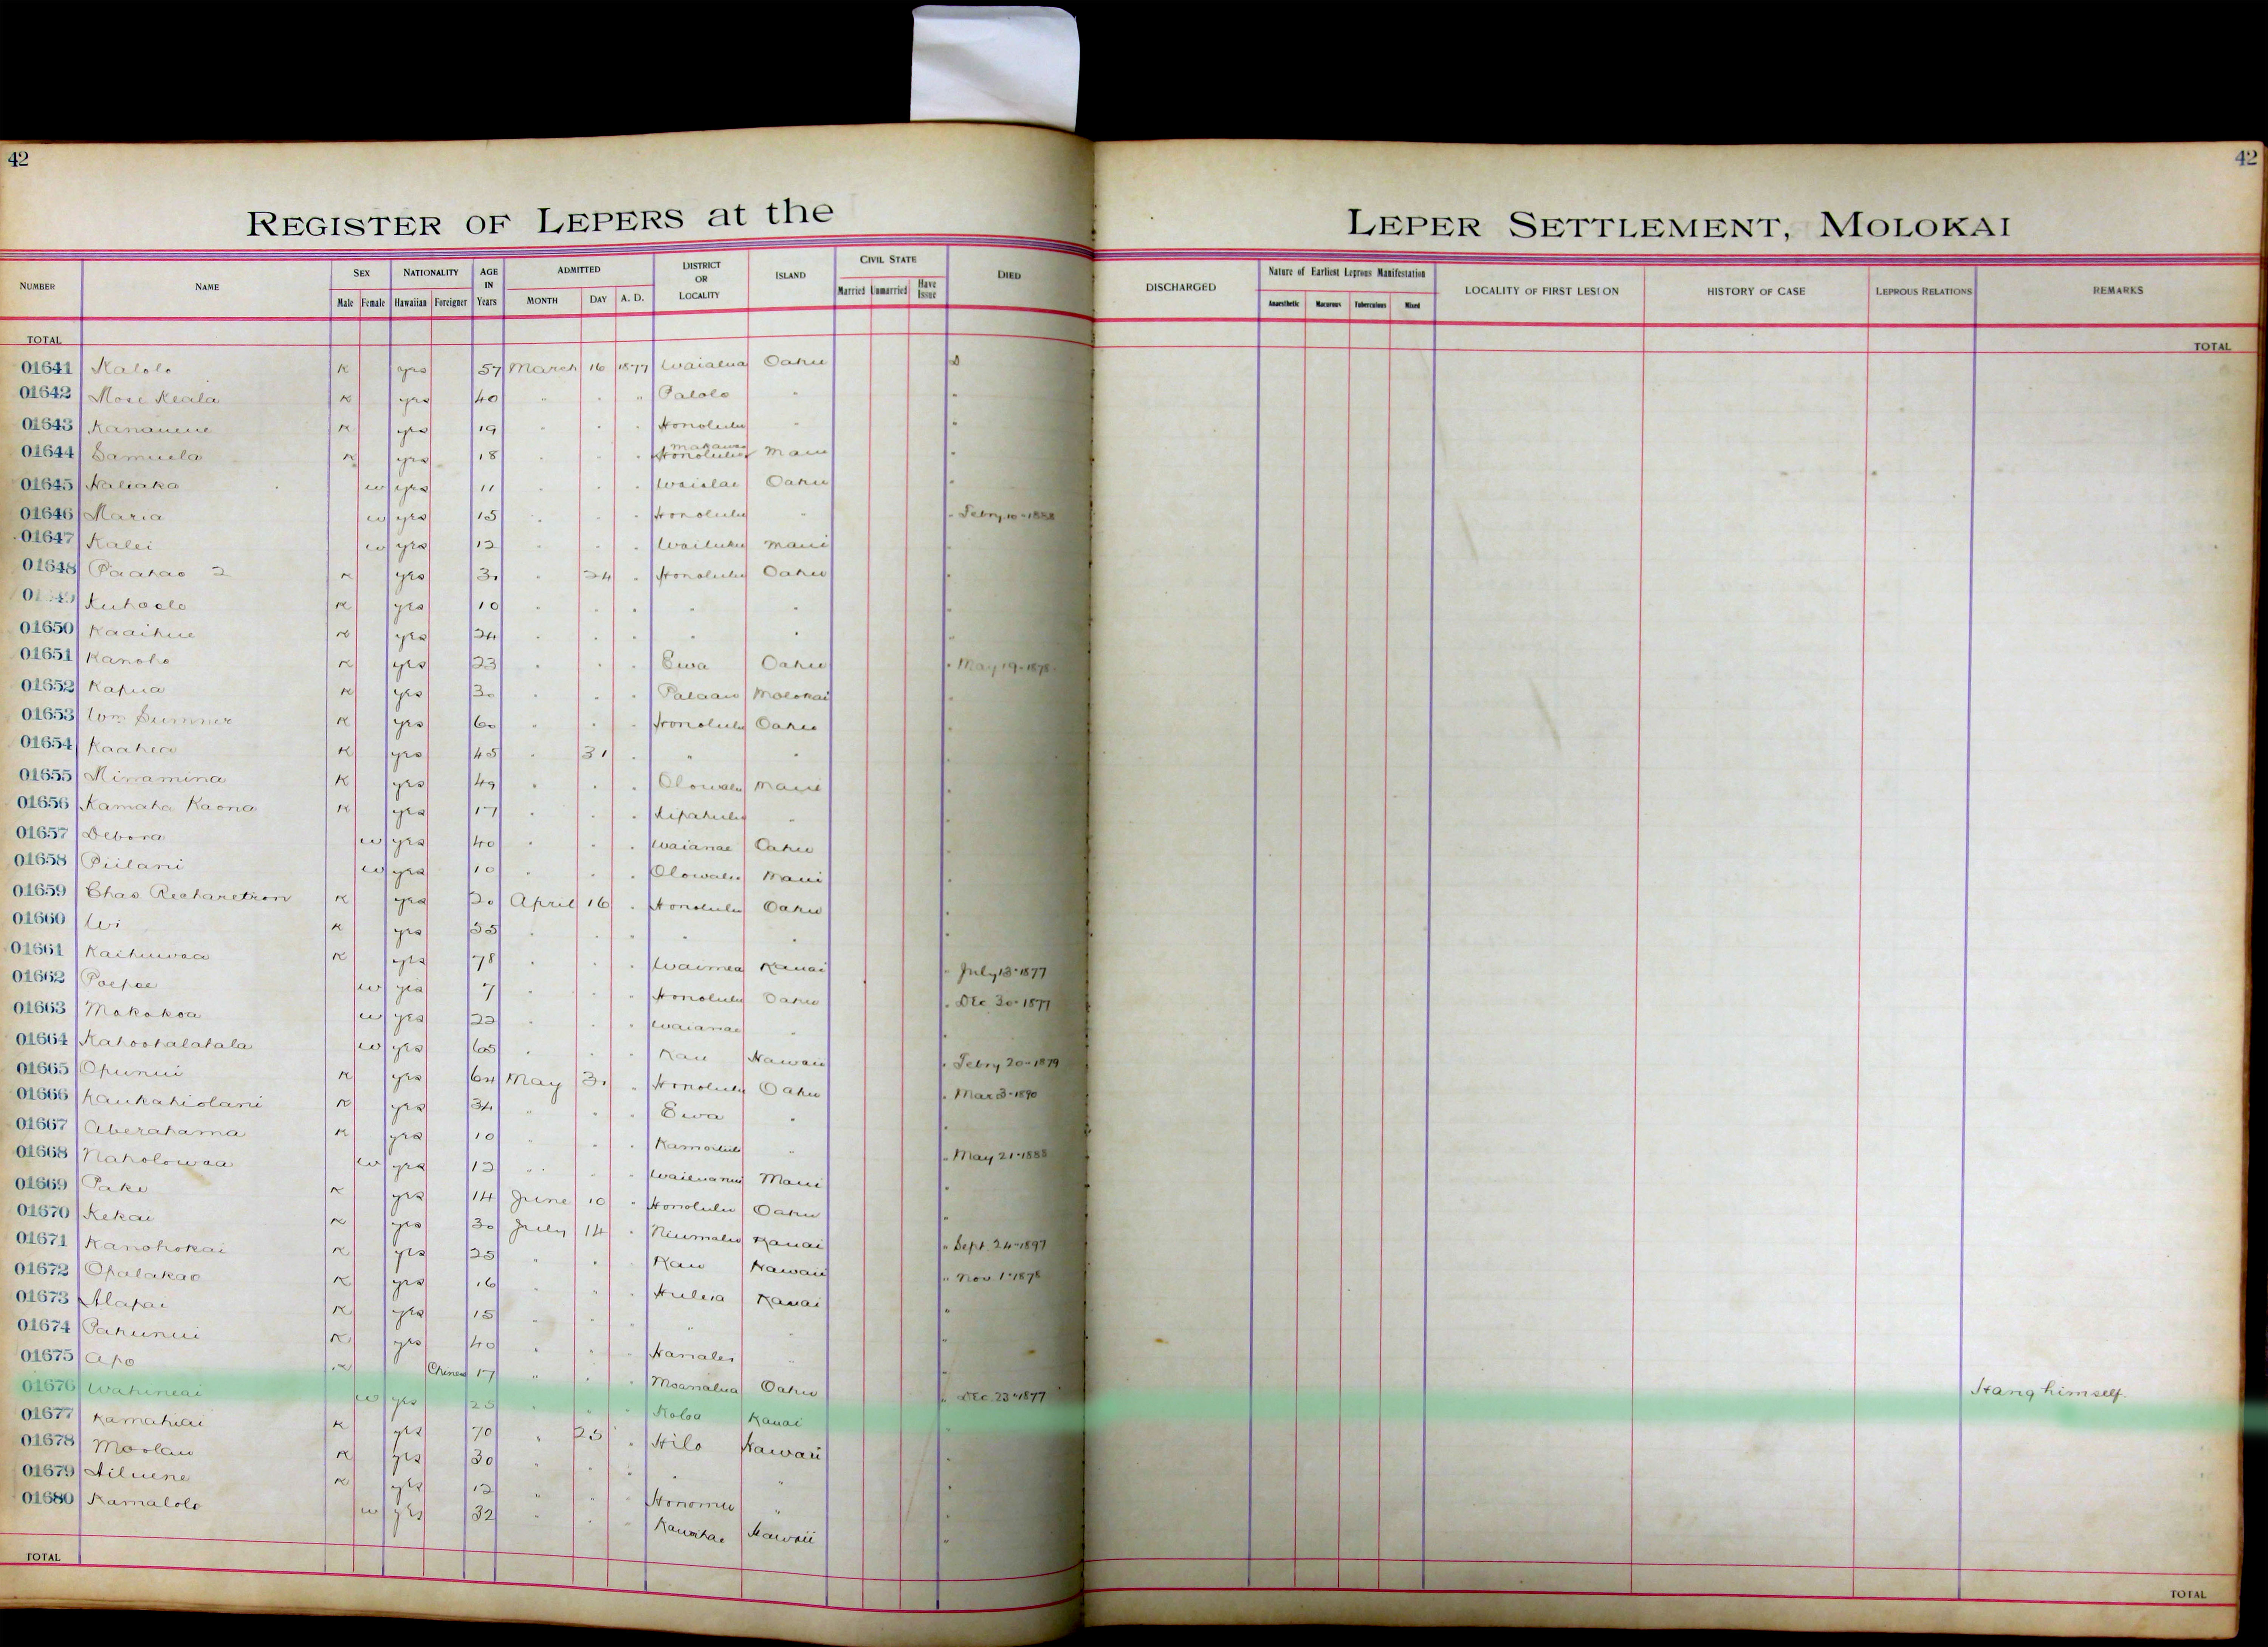 42
42
REGISTER OF LEPERS at the
LEPER SETTLEMENT, MOLOKAI
NUMBER NAME SEX Male Female NATIONALITY Hawaiian Foreigner AGE IN Years ADMITTED MONTH DAY A. D. DISTRICT OR LOCALITY ISLAND CIVIL STATE Married Unmarried Have Issue DIED
DISCHARGED Nature of Earliest Leprous Manifestation Anaesthetic Macurous Tuberculous Mixed LOCALITY OF FIRST LESION HISTORY OF CASE LEPROUS RELATIONS REMARKS
TOTAL
TOTAL
01641 Kalolo K yes 57 March 16 1877 Waialua Oahu D
01642 Mose Keala K yes 40 " " " Palolo " "
01643 K yes 19 " " " Honolulu " "
01644 Samuela K yes 18 " " " Honolulu Makawao Maui "
01645 Haliaka w yes 11 " " " Waialae Oahu "
01646 Maria w yes 15 " " " Honolulu " " Febry 10-1888
01647 Kalei w yes 12 " " " Wailuku Maui "
01648 Paahao 2 K yes 30 " 24 " Honolulu Oahu "
Kuhaelo K yes 10 " " " " " "
01650 Kaaihue K yes 24 " " " " " "
01651 Kanoho K yes 23 " " " Ewa Oahu " May 19-1878
01652 Kapua K yes 30 " " " Palaau Molokai "
01653 Wm Sumner K yes 60 " " " Honolulu Oahu "
01654 Kaahea K yes 45 " 31 " " " "
01655 Minamina K yes 49 " " " Olowalu Maui "
01656 Kamaha Kaona K yes 17 " " " Kipahulu " "
01657 Debora w yes 40 " " " Waianae Oahu "
01658 Piilani w yes 10 " " " Olowalu Maui "
01659 Chas K yes 20 April 16 " Honolulu Oahu "
01660 Wi K yes 35 " " " " " "
01661 Kaihuwaa K yes 78 " " " Waimea Kauai " July 13-1877
01662 Poepoe w yes 7 " " " Honolulu Oahu " Dec 30-1877
01663 Makakoa w yes 22 " " " Waianae " "
01664 Kahoohalahala w yes 65 " " " Kau Hawaii " Febry 20-1879
01665 Opunui K yes 64 May 31 " Honolulu Oahu " Mar 3-1890
01666 Kaukahiolani K yes 34 " " " Ewa " "
01667 Aberahama K yes 10 " " " Kamoiliili " " May 21-1888
01668 Naholowaa w yes 12 " " " Wailuanui Maui "
01669 Pake K yes 14 June 10 " Honolulu Oahu "
01670 Kekai K yes 30 July 14 " Niumalu Kauai " Sept. 24-1897
01671 Kanohokai K yes 25 " " " Kau Hawaii " Nov. 1-1878
01672 Opalakao K yes 16 " " " Huleia Kauai "
01673 Alapai K yes 15 " " " " " "
01674 Pahunui K yes 40 " " " Hanalei " "
01675 Apo K Chinese 17 " " " Moanalua Oahu " Dec. 23-1877 Hang himself.
01676 Wahineai w yes 25 " " " Koloa Kauai "
01677 Kamahiai K yes 70 " 25 " Hilo Hawaii "
01678 Moolau K yes 30 " " " " " "
01679 K yes 12 " " " Honomu " "
01680 Kamalolo w yes 32 " " " Kawaihae Hawaii "
TOTAL
TOTAL